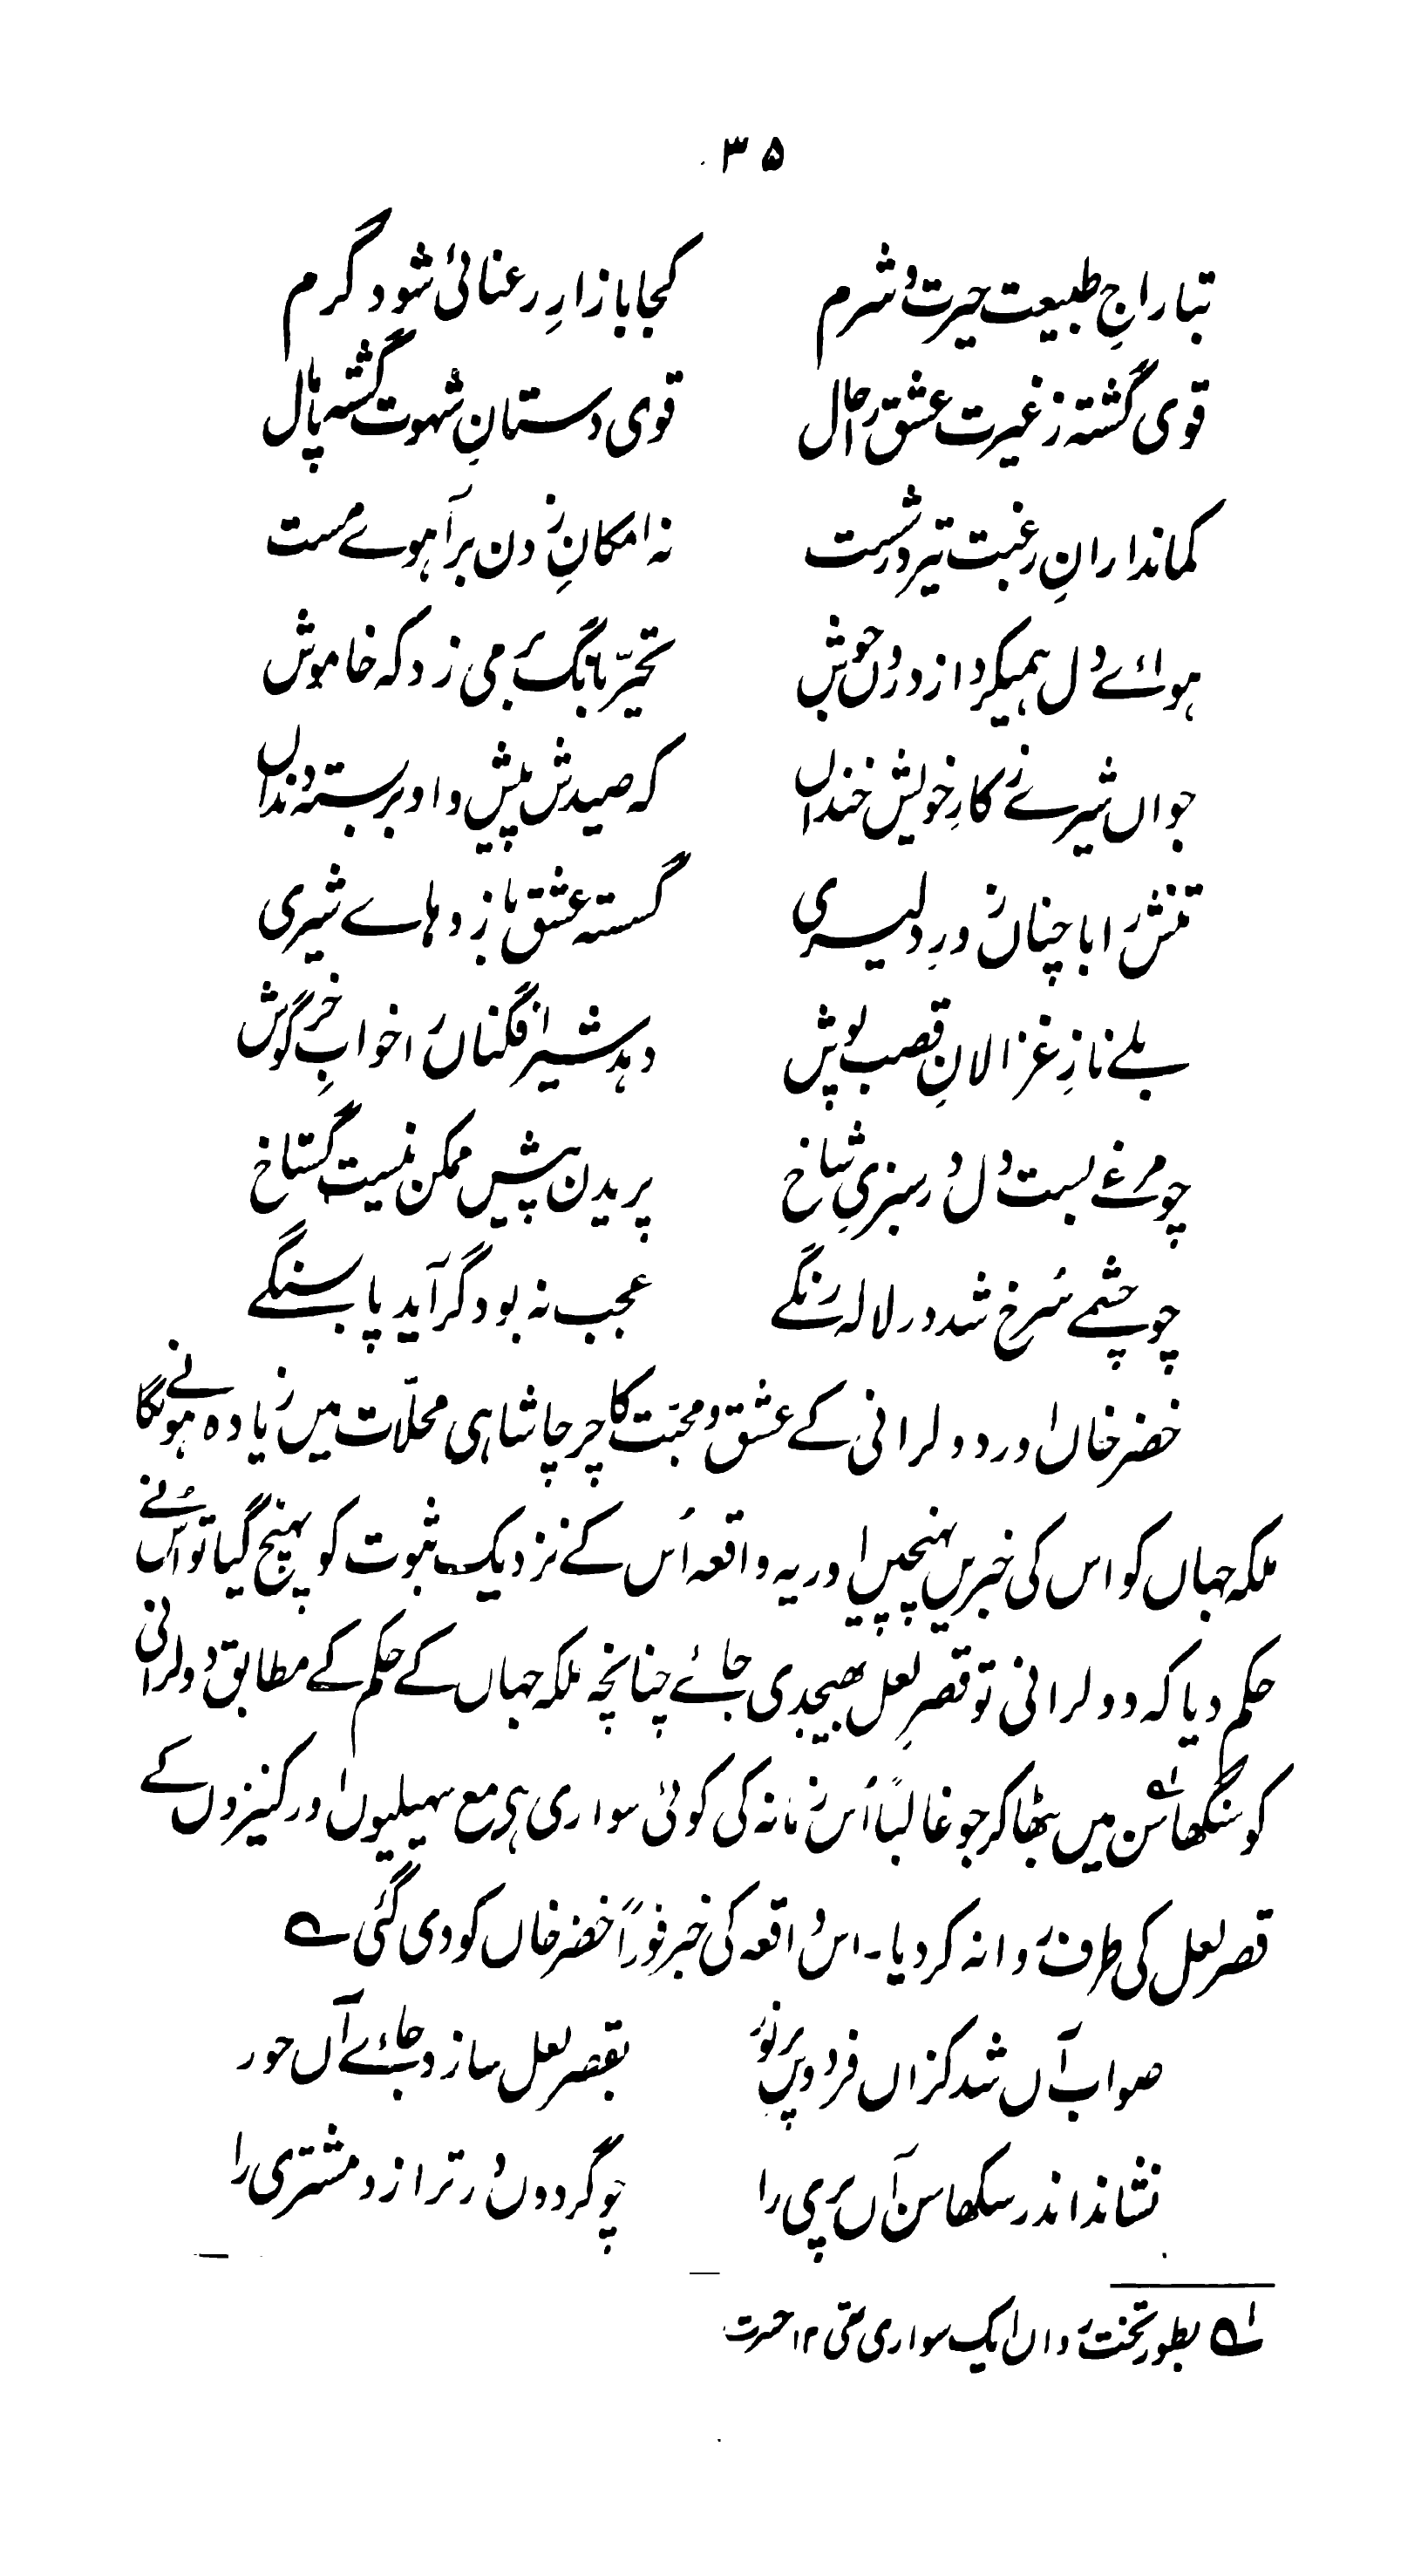 ۳۵
بتاراجِ طبیعت حیرت و شرم کجا بازارِ رعنائی شود گرم
قوی گشته ز غیرت عشق را حال قوی دستانِ شهوت گشته پامال
کماندارانِ رغبت تیر در شست نه امکانِ زدن بر آهوے مست
هوائے دل همیکرد از دروں جوش تحیّر بانگ بر می زد که خاموش
جواں شیرے ز کارِ خویش خنداں که صیدش پیش و او بر بسته دنداں
تنش را با چناں زورِ دلیری گسسته عشق بازوهاے شیری
بلے نازِ غزالانِ قصب پوش دهد شیر افگناں را خوابِ خرگوش
چو مرغے بست دل در سبزیِ شاخ پریدن پیش ممکن نیست گستاخ
چو چشمے سُرخ شد در لاله رنگے عجب نه بود گر آید پا بسنگے
خضر خاں اور دولرانی کے عشق و محبّت کا چرچا شاہی محلّات میں زیادہ ہونے لگا
ملکہ جہاں کو اس کی خبریں پہنچیں اور یہ واقعہ اُس کے نزدیک ثبوت کو پہنچ گیا تو اُس نے
حکم دیا کہ دولرانی تو قصرِ لعل بھیجدی جائے چنانچہ ملکہ جہاں کے حکم کے مطابق دولرانی
کو سنگھاسن لہ میں بٹھا کر جو غالباً اُس زمانہ کی کوئی سواری ہی مع سہیلیوں اور کنیزوں کے
قصر لعل کی طرف روانہ کر دیا۔ اس واقعہ کی خبر فوراً خضر خاں کو دی گئی ؎
صواب آں شد کزاں فردوس پر نور بقصر لعل سازد جائے آں حور
نشاند اندر سکھاسن آں پری را چو گردوں در ترازو مشتری را
لہ بطور تخت رواں ایک سواری تھی ۱۲ حسرت